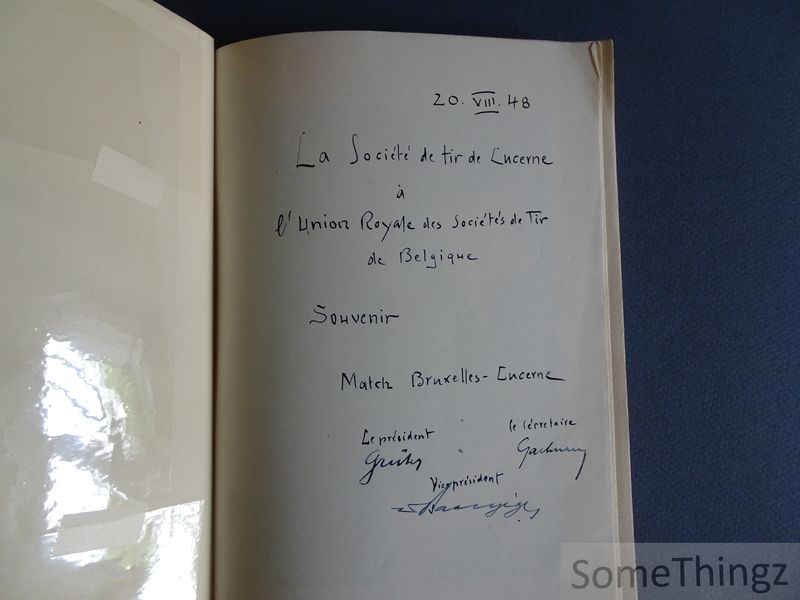 20. VIII. 48
La Société de tir de Lucerne
à
l'Union Royale des Sociétés de Tir
de Belgique
Souvenir
Match Bruxelles - Lucerne
Le président
le sécretaire
Vice président
SomeThingz